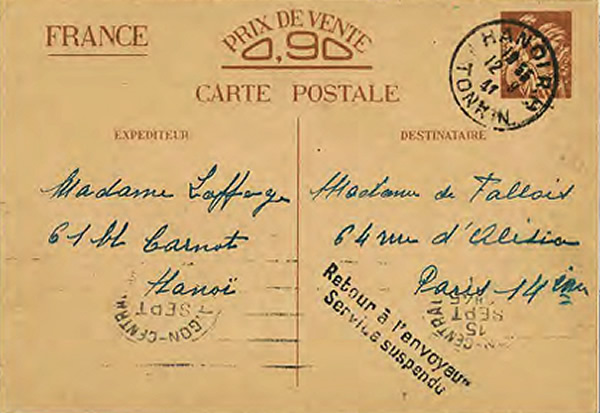 FRANCE
PRIX DE VENTE
0,90
CARTE POSTALE
HANOI R.P
12 9
41
TONKIN
EXPÉDITEUR
Madame Laffarge
61 Bd Carnot
Hanoï
DESTINATAIRE
Madame de Tallois
64 rue d'Alésia
Paris 14ème
Retour à l'envoyeur
Service suspendu
GON-CENTRA
SEPT
N-CENTRAL
15
SEPT
1945